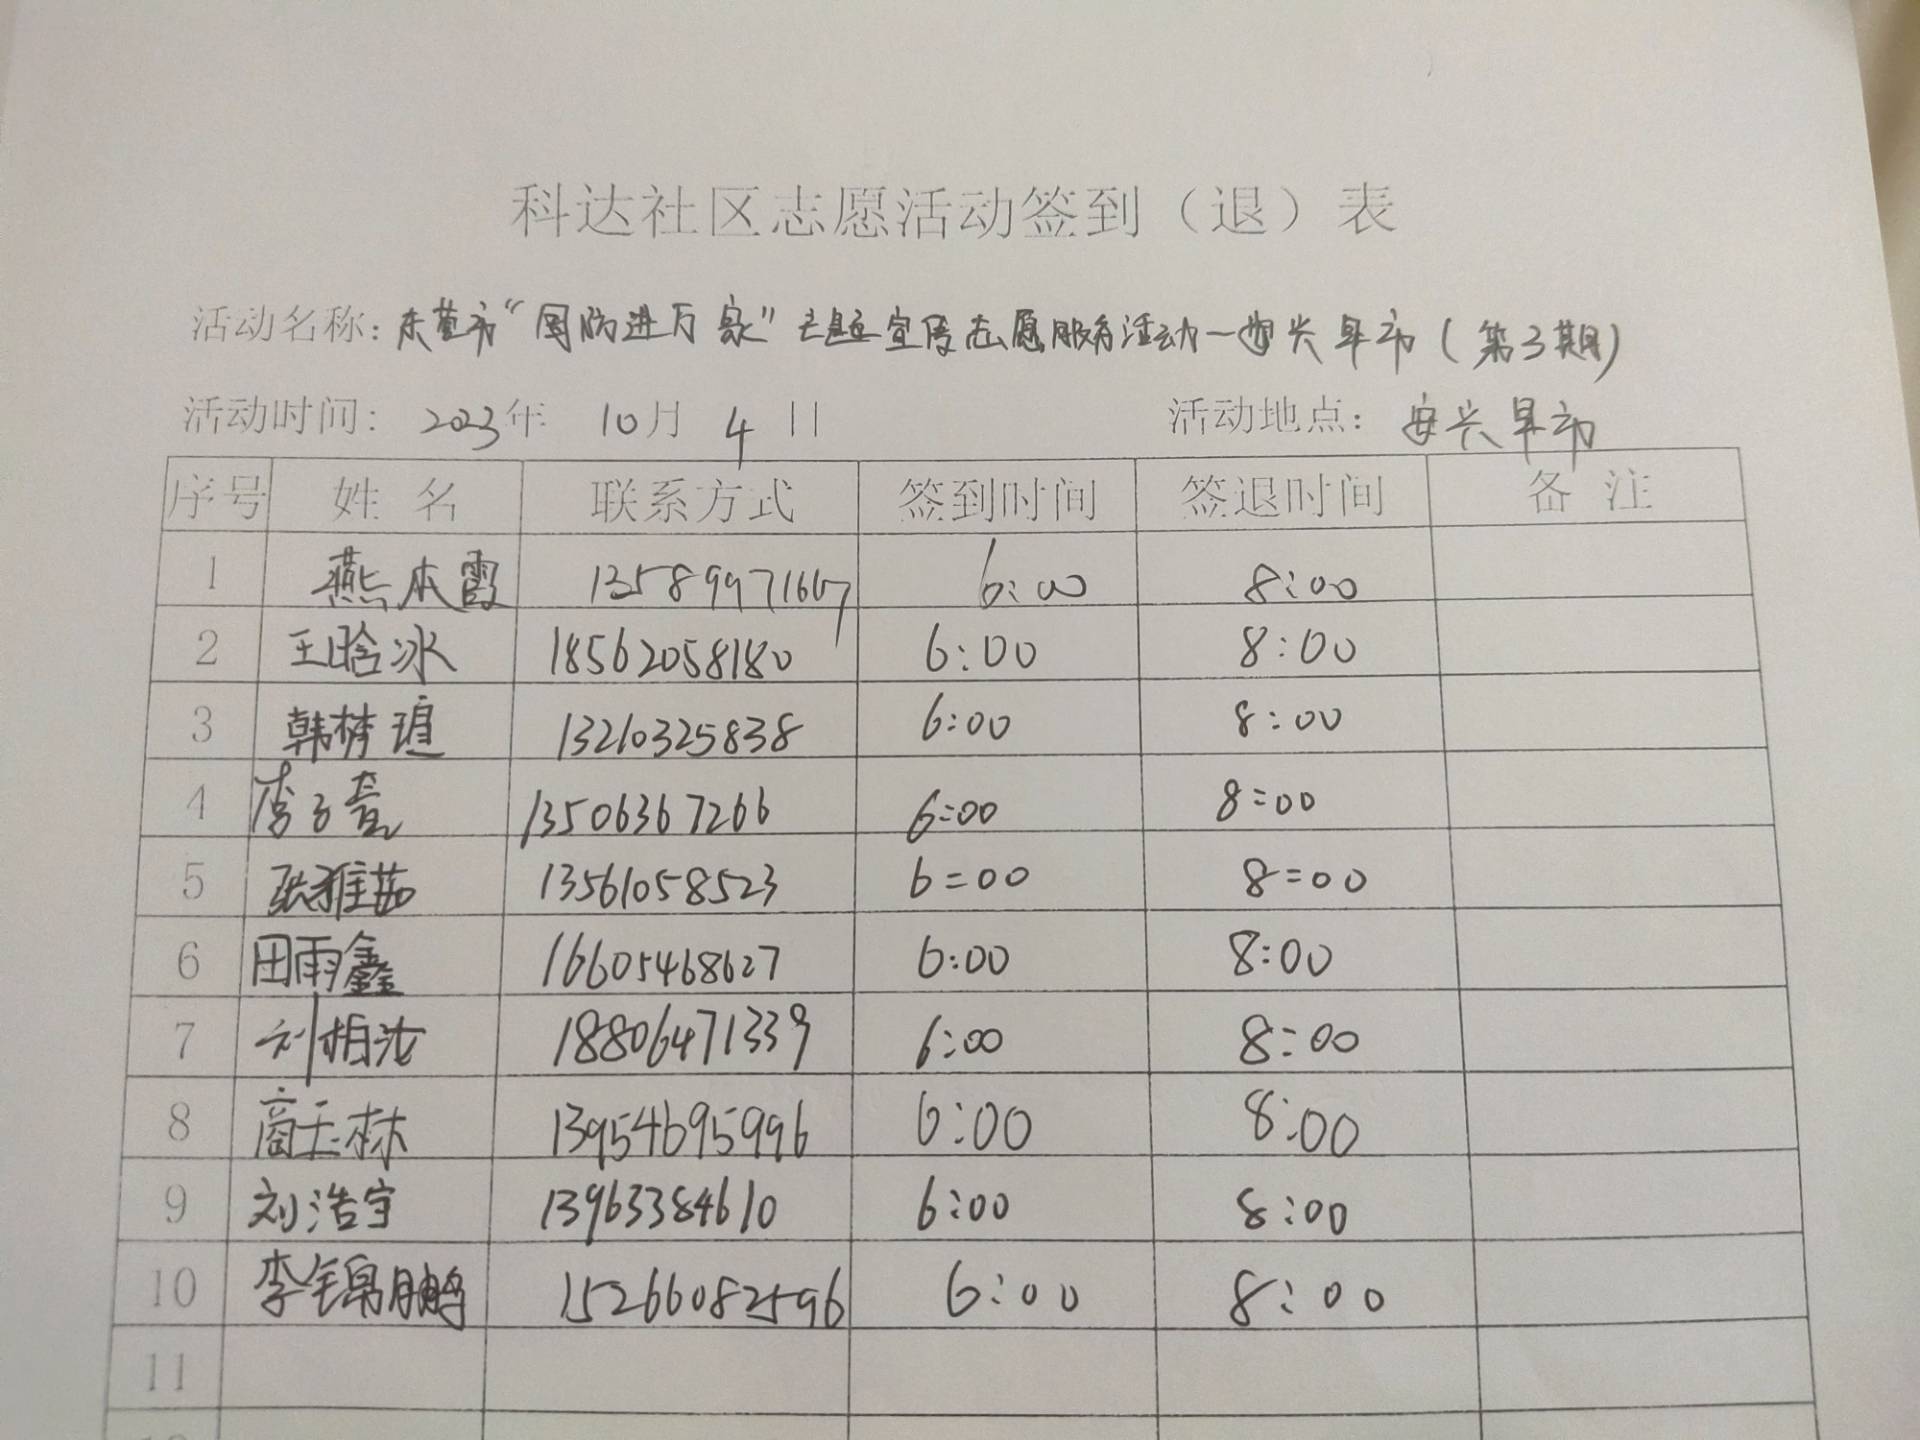 科达社区志愿活动签到（退）表
活动名称：东营市“国防进万家”主题宣传志愿服务活动一安兴早市(第3期)
活动时间： 2023年 10月 4日 活动地点： 安兴早市
序号 姓 名 联系方式 签到时间 签退时间 备 注
1 燕本霞 13589971667 6:00 8:00
2 王晗冰 18562058180 6:00 8:00
3 韩梦瑄 13210325838 6:00 8:00
4 李子 13506367266 6:00 8:00
5 张雅茹 13561058523 6:00 8:00
6 田雨鑫 16605468627 6:00 8:00
7 刘相 18806471339 6:00 8:00
8 商玉林 13954695996 6:00 8:00
9 刘浩宇 13963384610 6:00 8:00
10 李锦鹏 15266082596 6:00 8:00
11